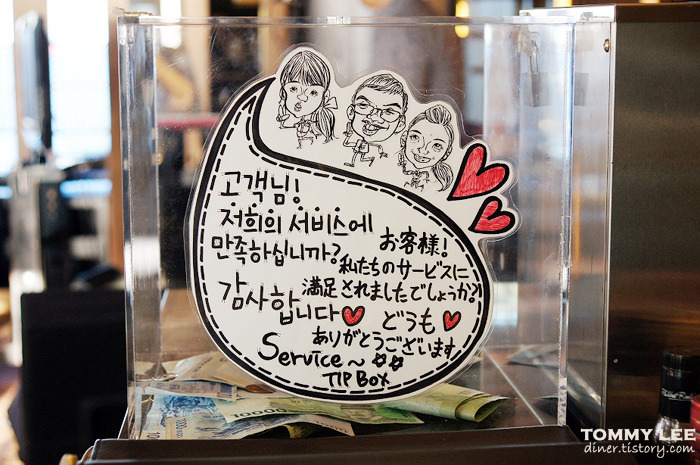 고객님!
저희의 서비스에
만족하십니까?
감사합니다
お客様!
私たちのサービスに
満足されましたでしょうか?
どうも
ありがとうございます
Service~
TIP BOX
10000
TOMMY LEE
diner.tistory.com